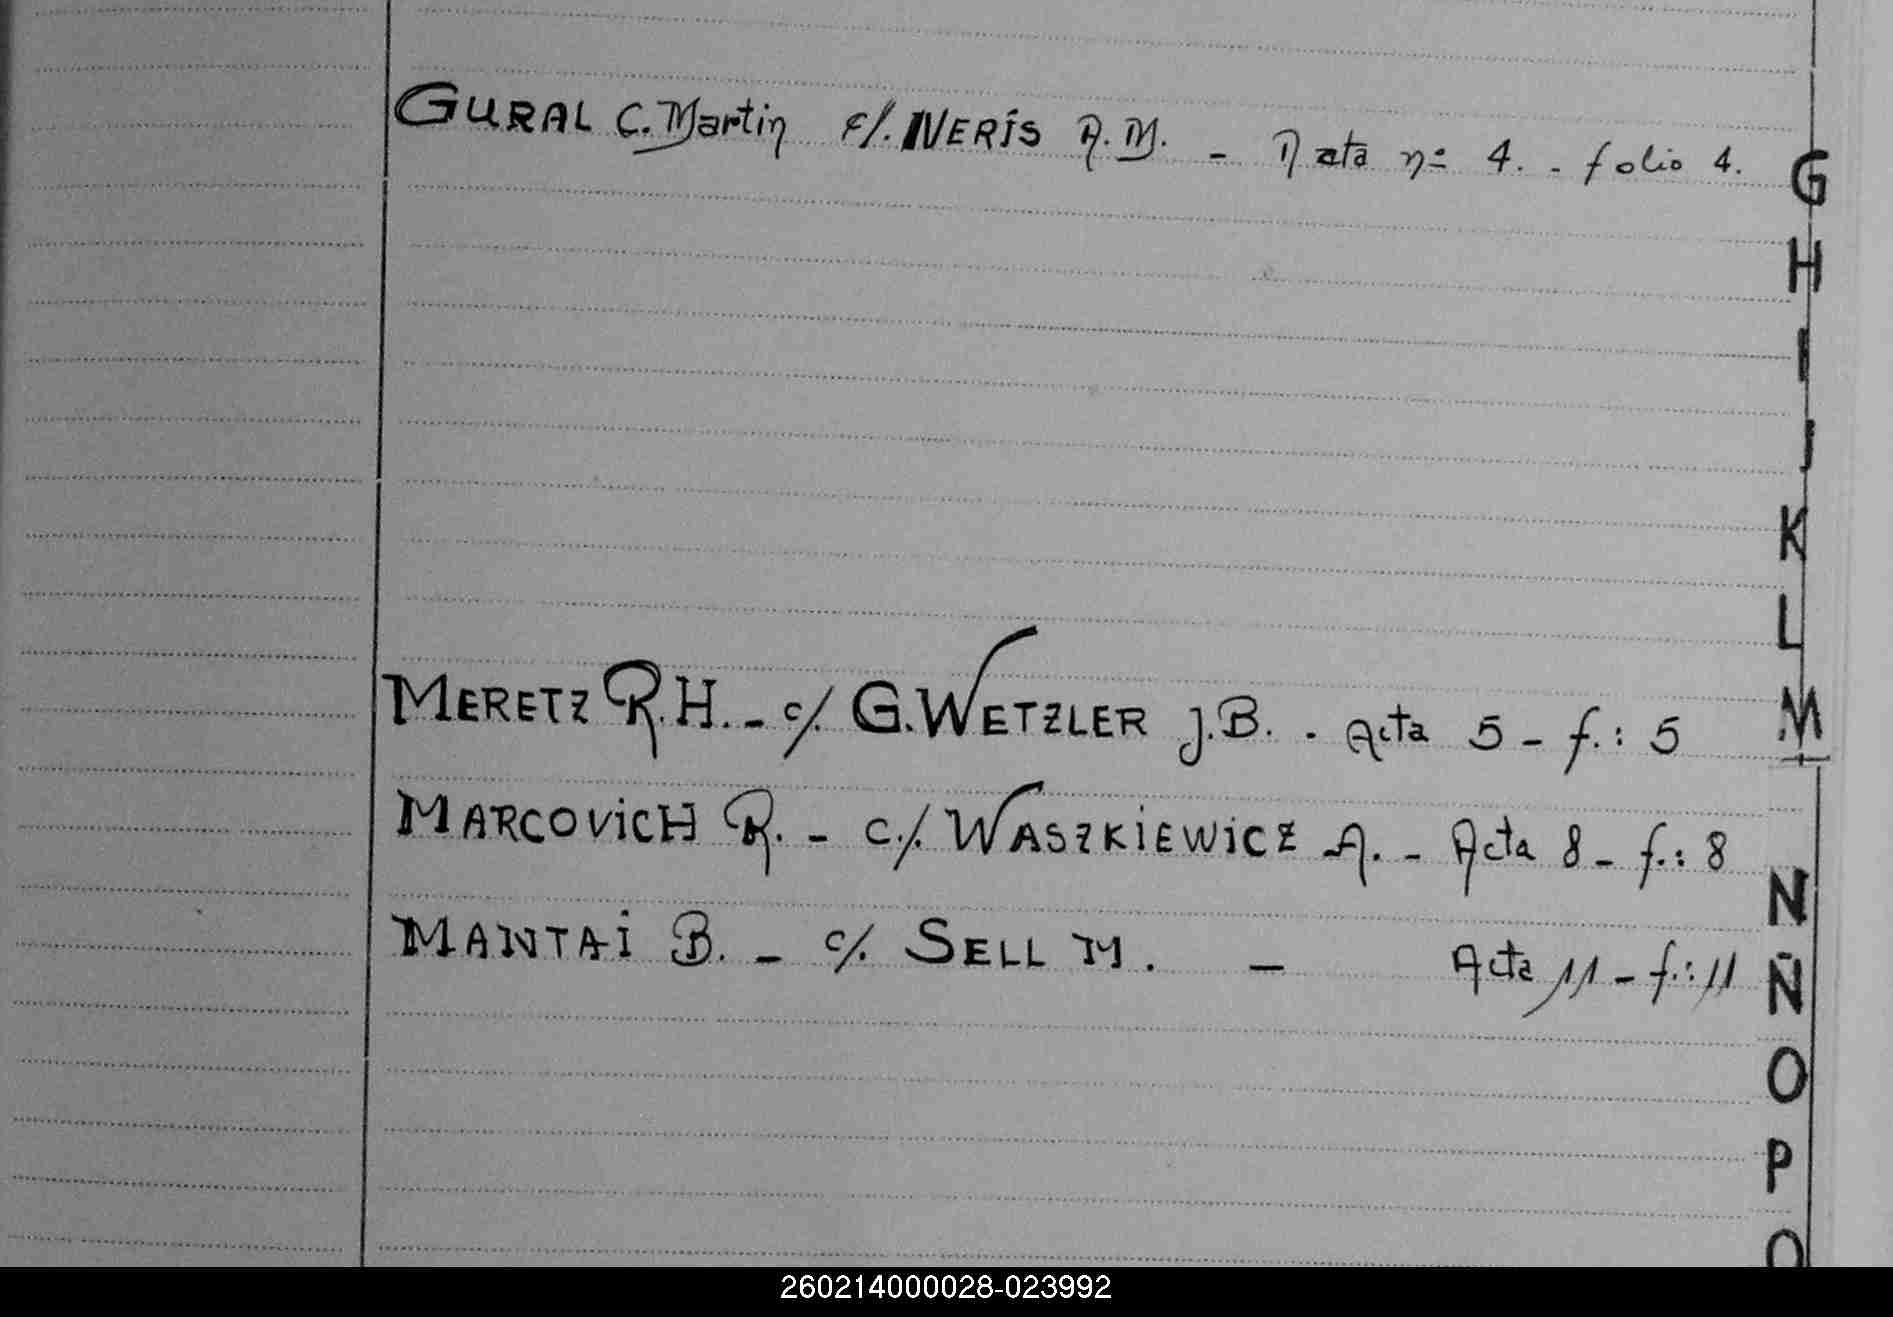 GURAL C. Martin c/. NERIS A. M. - Acta nº 4. - folio 4.
G
H
I
J
K
L
MERETZ R. H. - c/. G. WETZLER J. B. - Acta 5 - f.: 5
M
MARCOVICH R. - c./. WASZKIEWICZ A. - Acta 8 - f.: 8
N
MANTAI B. - c/. SELL M. - Acta 11 - f.: 11
Ñ
O
P
Q
260214000028-023992